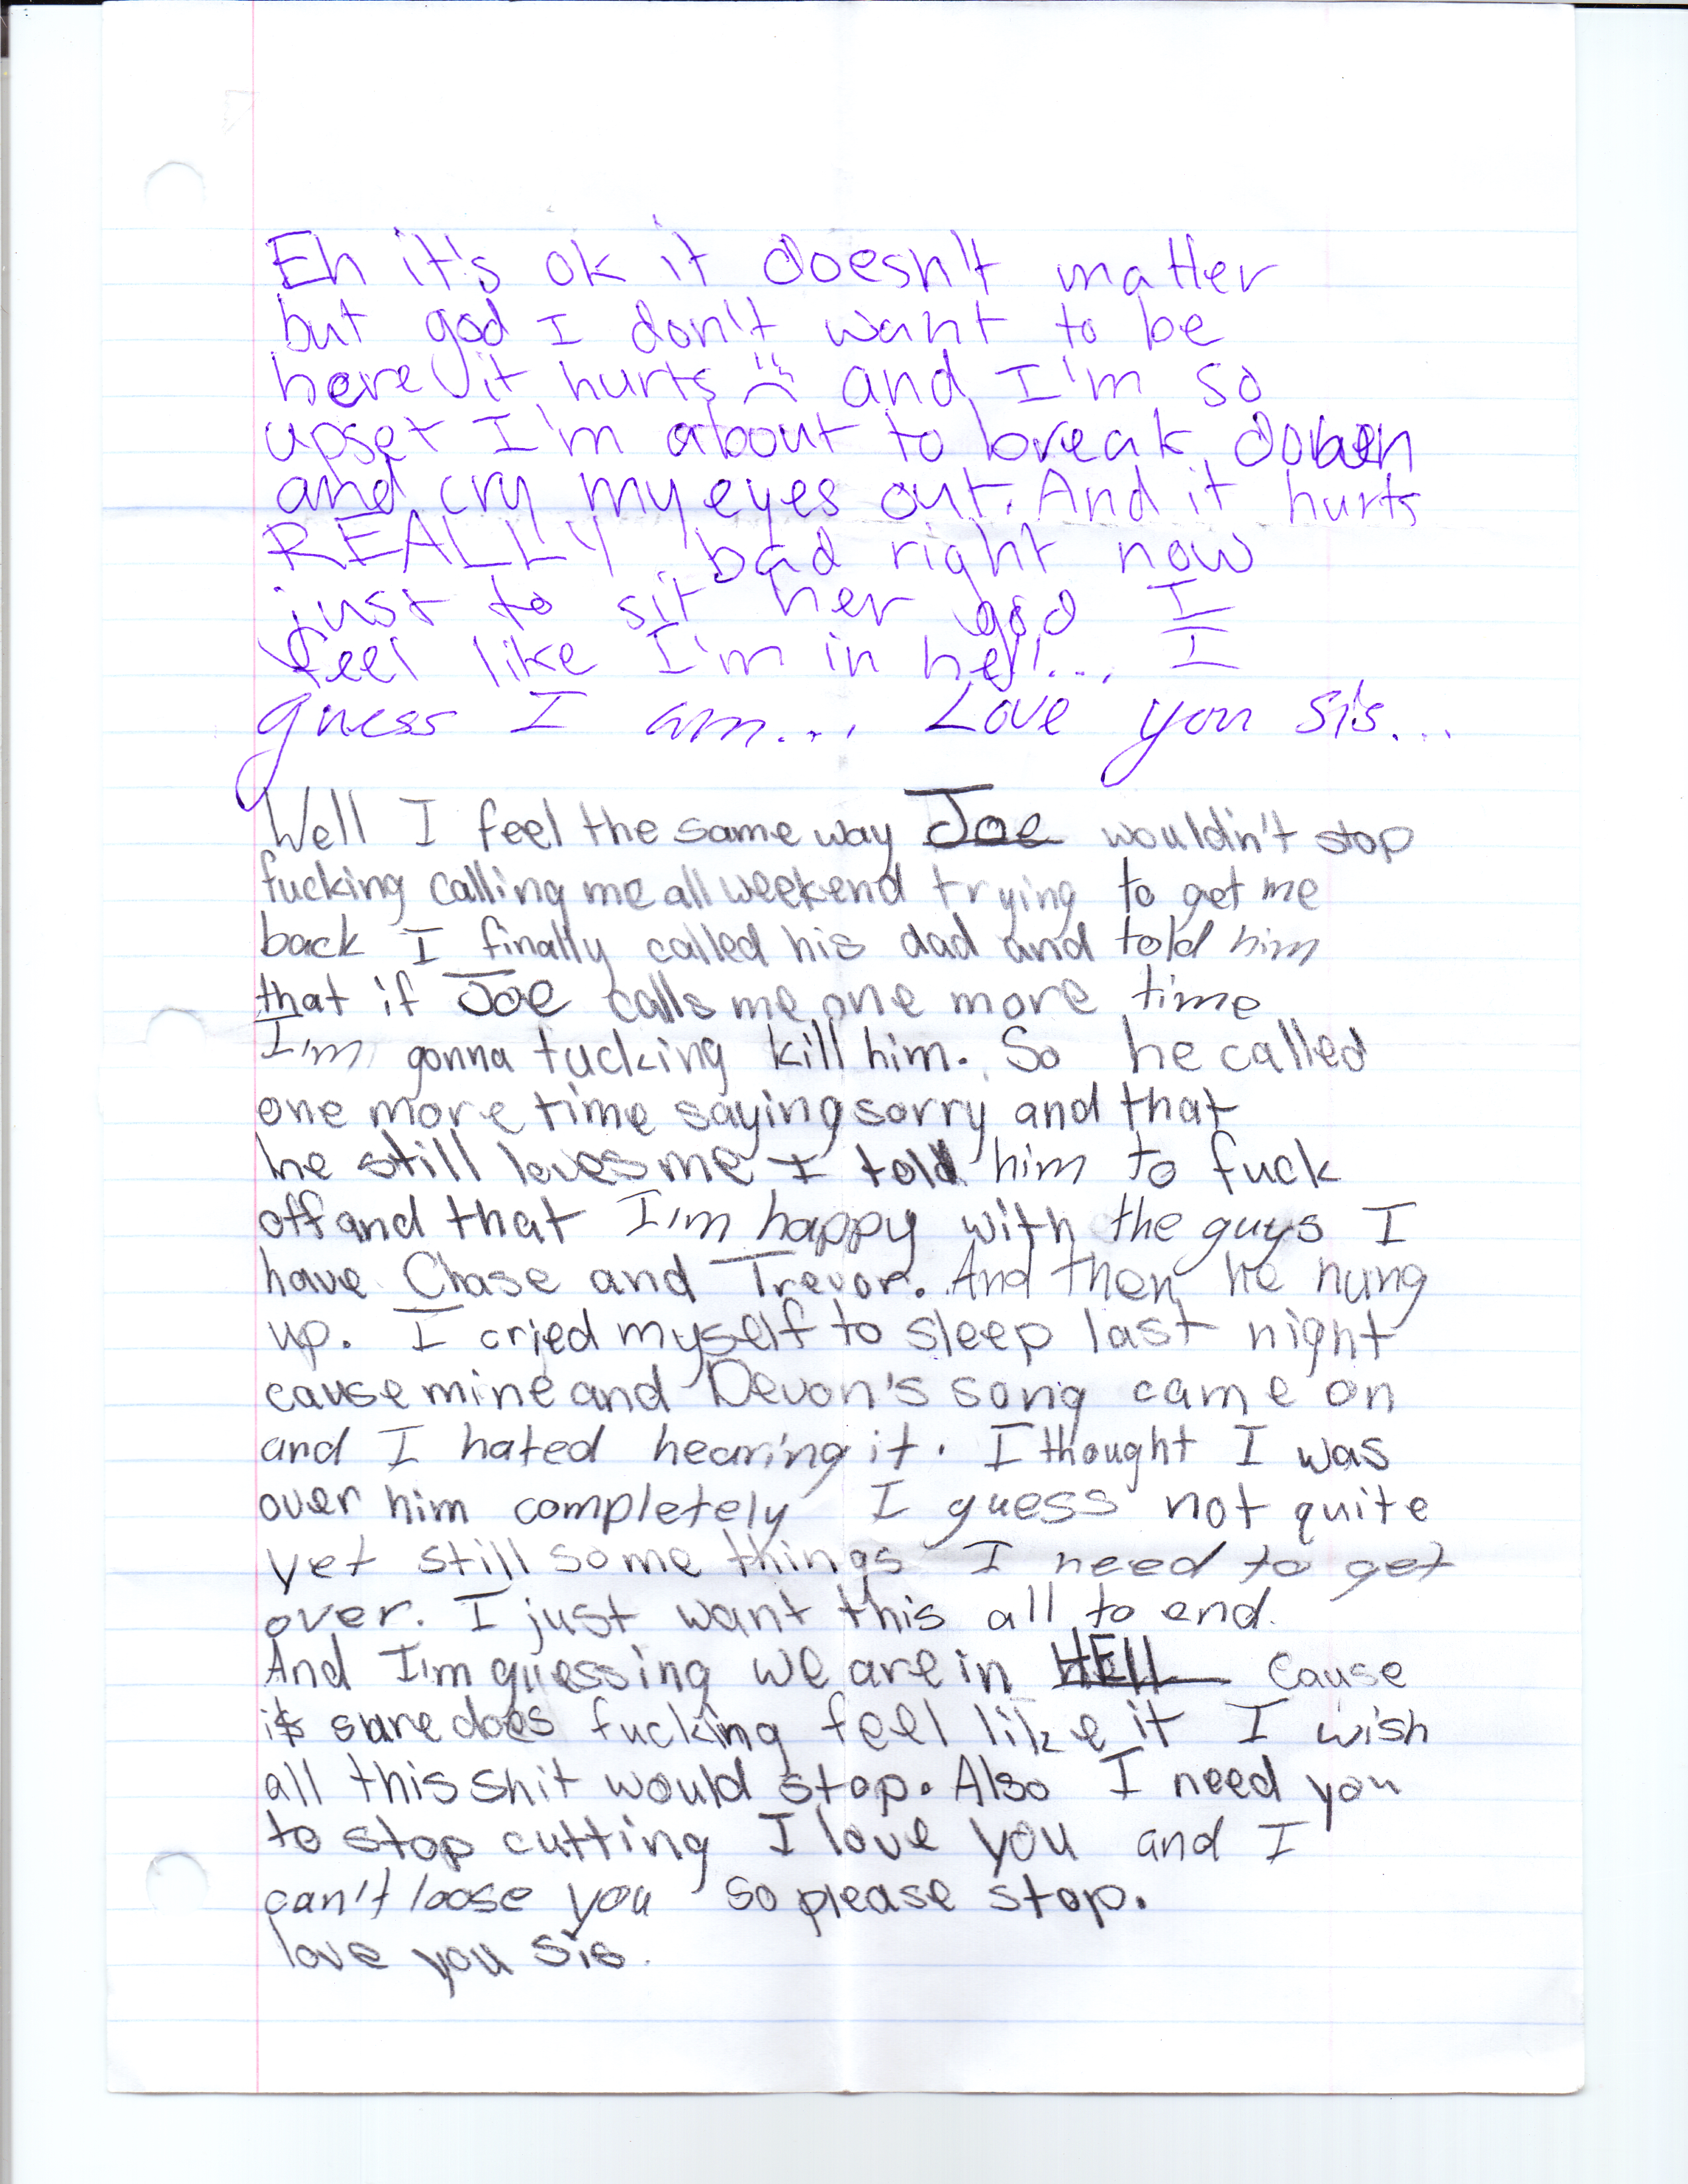 Eh it's ok it doesn't matter
but god I don't want to be
here it hurts :( and I'm so
upset I'm about to break down
and cry my eyes out. And it hurts
REALLY bad right now
just to sit her god I
feel like I'm in hell... I
guess I am... Love you sis...
Well I feel the same way Joe wouldn't stop
fucking calling me all weekend trying to get me
back I finally called his dad and told him
that if Joe calls me one more time
I'm gonna fucking kill him. So he called
one more time saying sorry and that
he still loves me I told him to fuck
off and that I'm happy with the guys I
have Chase and Trevor. And then he hung
up. I cried myself to sleep last night
cause mine and Devon's song came on
and I hated hearing it. I thought I was
over him completely I guess not quite
yet still some things I need to get
over. I just want this all to end.
And I'm guessing we are in HEll cause
it sure does fucking feel like it I wish
all this shit would stop. Also I need you
to stop cutting I love you and I
can't loose you so please stop.
love you sis.